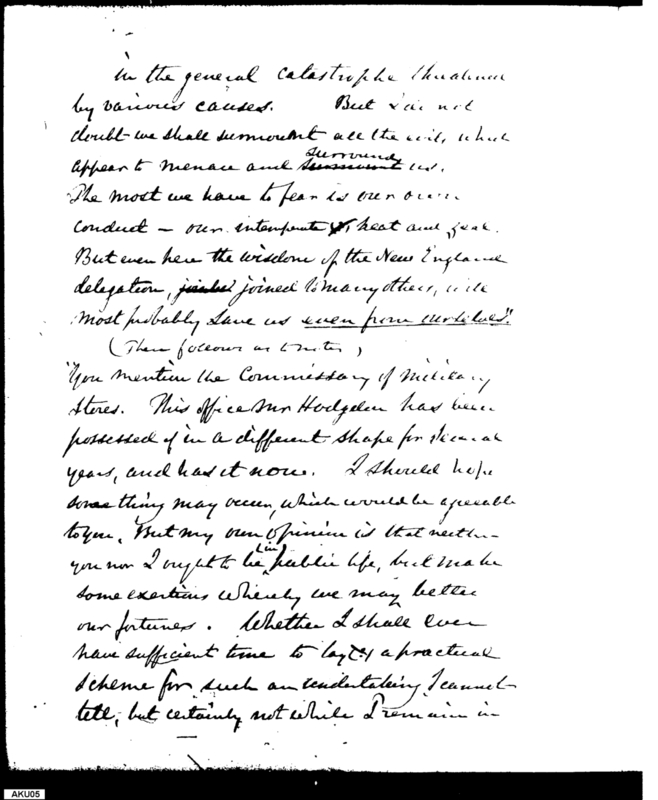 in the general catastrophe threatened
by various causes. But I do not
doubt we shall surmount all the evils which
surround
appear to menace and surmount us.
The most we have to fear is our own
conduct – our intemperate heat and zeal.
But even here the wisdom of the New England
delegation, joined joined to many others, will
most probably save us even from ourselves".
(Then follows as to
"You mention the Commissary of Military
Stores. This office Mr Hodgdon has been
possessed of in a different shape for several
years, and has it now. I should hope
some thing may occur, which would be agreeable
to you. But my own opinion is that neither
in
you nor I ought to be public life, but make
some exertions whereby we may better
our fortunes. Whether I shall ever
have sufficient time to lay a practical
scheme for such an undertaking I cannot
tell, but certainly not while I remain in
AKU05